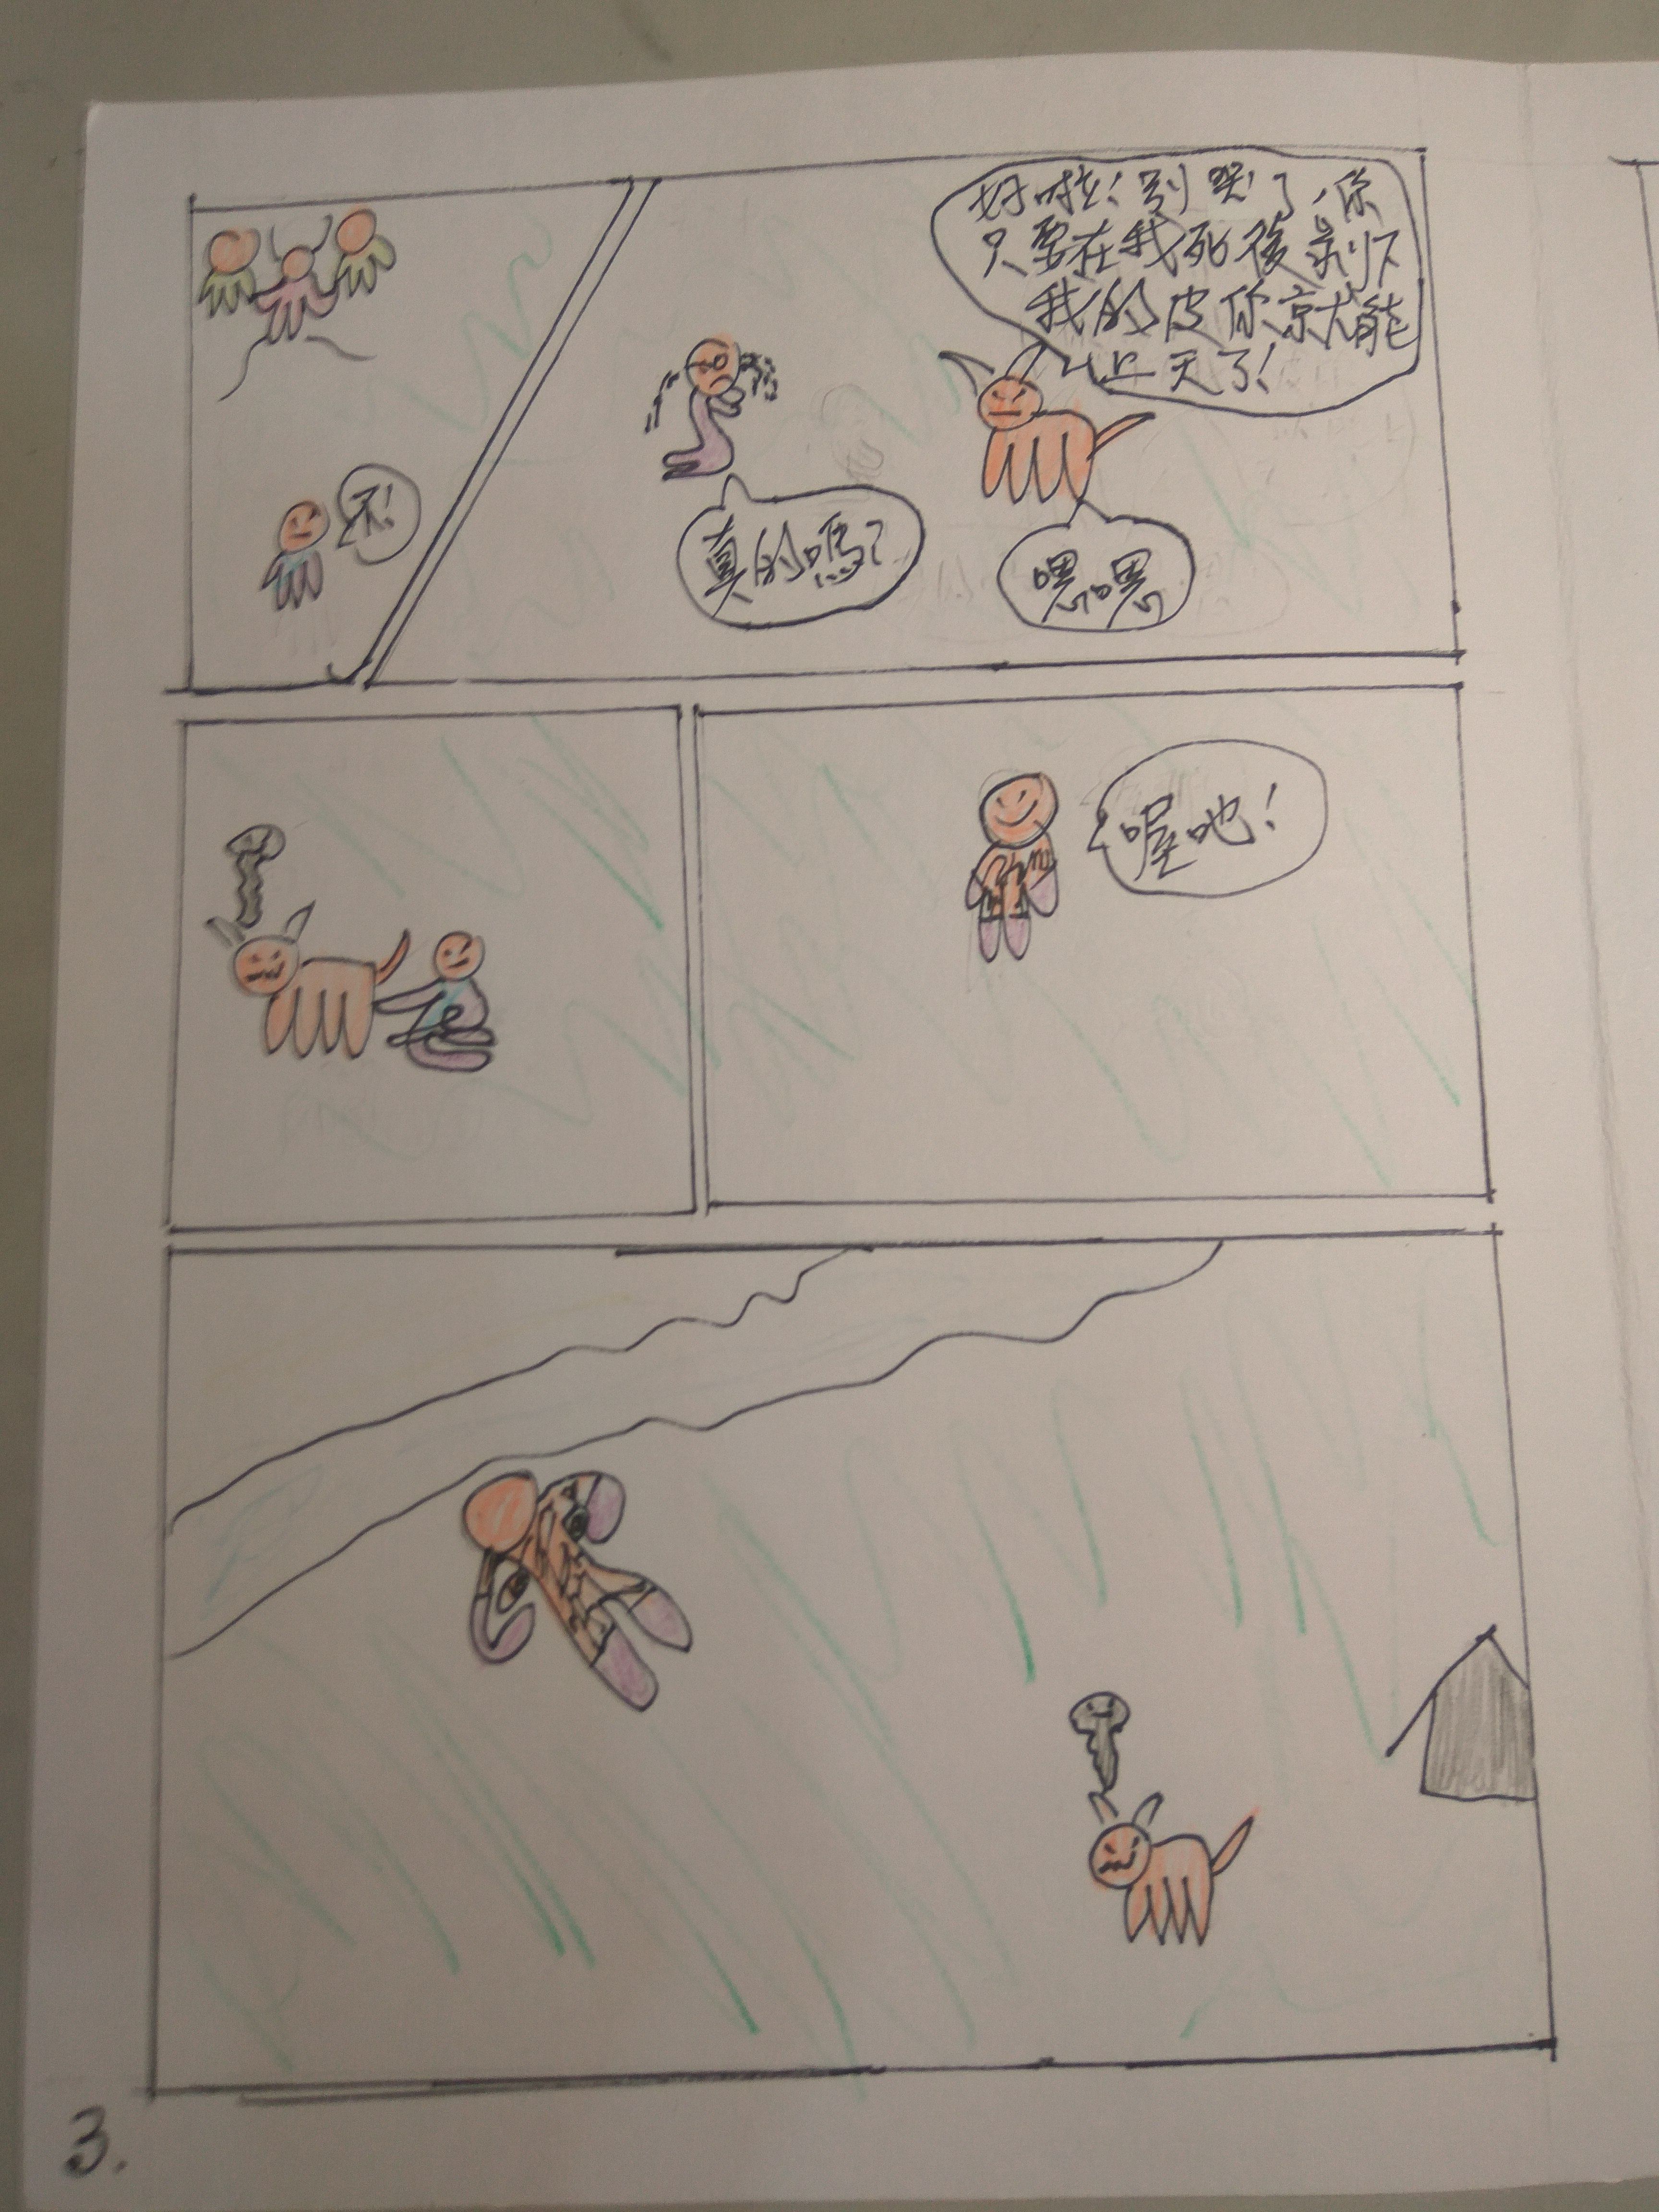 不!
好啦!別哭了,你
只要在我死後剝下
我的皮你就能
上天了!
真的嗎?
嘿嘿
喔吔!
3.